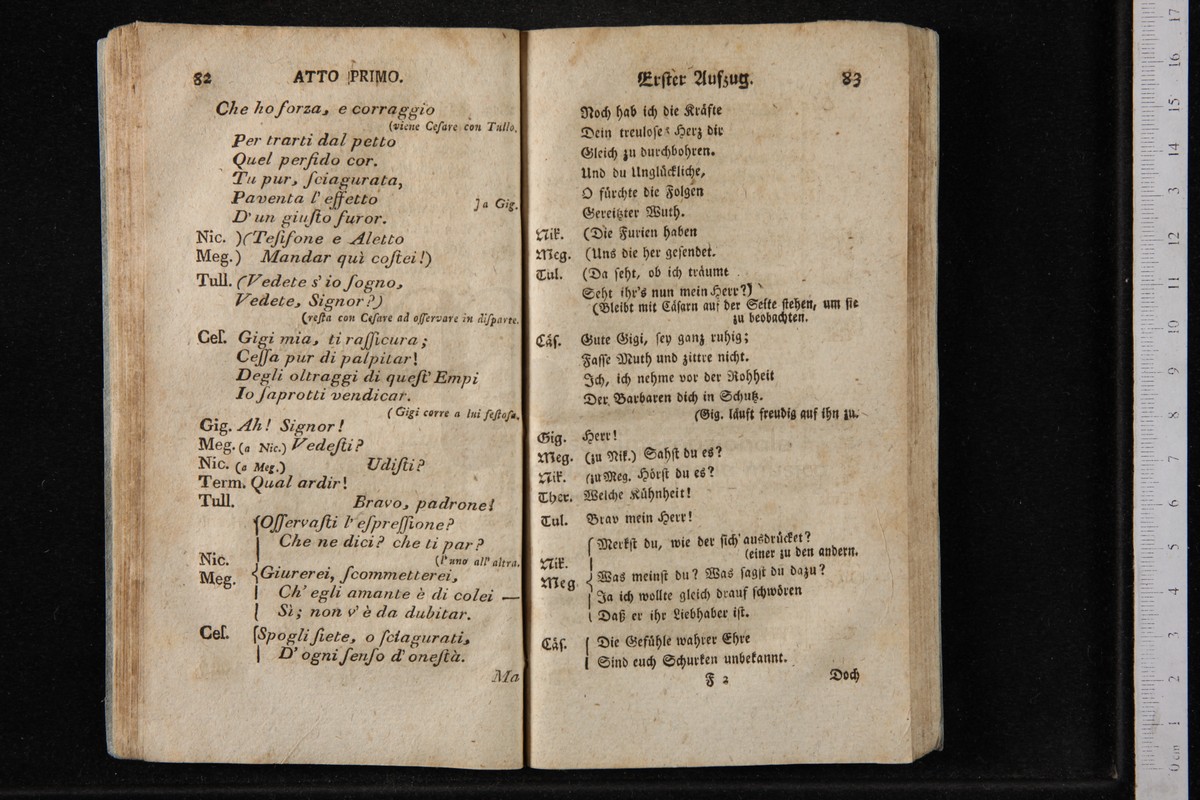 82 ATTO PRIMO.
Che ho forza, e corraggio
(viene Ceſare con Tullo.
Per trarti dal petto
Quel perfido cor.
Tu pur, ſciagurata,
Paventa l' effetto
]a Gig.
D' un giuſto furor.
Nic. )(Teſifone e Aletto
Meg.) Mandar quì coſtei!)
Tull. (Vedete s' io ſogno,
Vedete, Signor?)
(reſta con Ceſare ad oſſervare in diſparte.
Ceſ. Gigi mia, ti raſſicura;
Ceſſa pur di palpitar!
Degli oltraggi di queſt' Empi
Io ſaprotti vendicar.
(Gigi corre a lui feſtoſa.
Gig. Ah! Signor!
Meg. (a Nic.) Vedeſti?
Nic. (a Meg.) Udiſti?
Term. Qual ardir!
Tull. Bravo, padrone!
Oſſervaſti l' eſpreſſione?
Che ne dici? che ti par?
Nic. (l' una all' altra.
Meg. Giurerei, ſcommetterei,
Ch' egli amante è di colei —
Sì; non v' è da dubitar.
Ceſ. Spogli ſiete, o ſciagurati,
D' ogni ſenſo d' oneſtà.
Ma
Erſter Aufzug. 83
Noch hab ich die Kräfte
Dein treuloſes Herz dir
Gleich zu durchbohren.
Und du Unglückliche,
O fürchte die Folgen
Gereitzter Wuth.
Nik. (Die Furien haben
Meg. (Uns die her geſendet.
Tul. (Da ſeht, ob ich träumt
Seht ihr's nun mein Herr?)
(Bleibt mit Cäſarn auf der Seite ſtehen, um ſie
zu beobachten.
Cäſ. Gute Gigi, ſey ganz ruhig;
Faſſe Muth und zittre nicht.
Ich, ich nehme vor der Rohheit
Der Barbaren dich in Schutz.
(Gig. läuft freudig auf ihn zu.
Gig. Herr!
Meg. (zu Nik.) Sahſt du es?
Nik. (zu Meg. Hörſt du es?
Ther. Welche Kühnheit!
Tul. Brav mein Herr!
Merkſt du, wie der ſich ausdrücket?
(einer zu den andern.
Nik.
Meg Was meinſt du? Was ſagſt du dazu?
Ja ich wollte gleich drauf ſchwören
Daß er ihr Liebhaber iſt.
Cäſ. Die Gefühle wahrer Ehre
Sind euch Schurken unbekannt.
F 2 Doch
0 cm 1 2 3 4 5 6 7 8 9 10 11 12 13 14 15 16 17